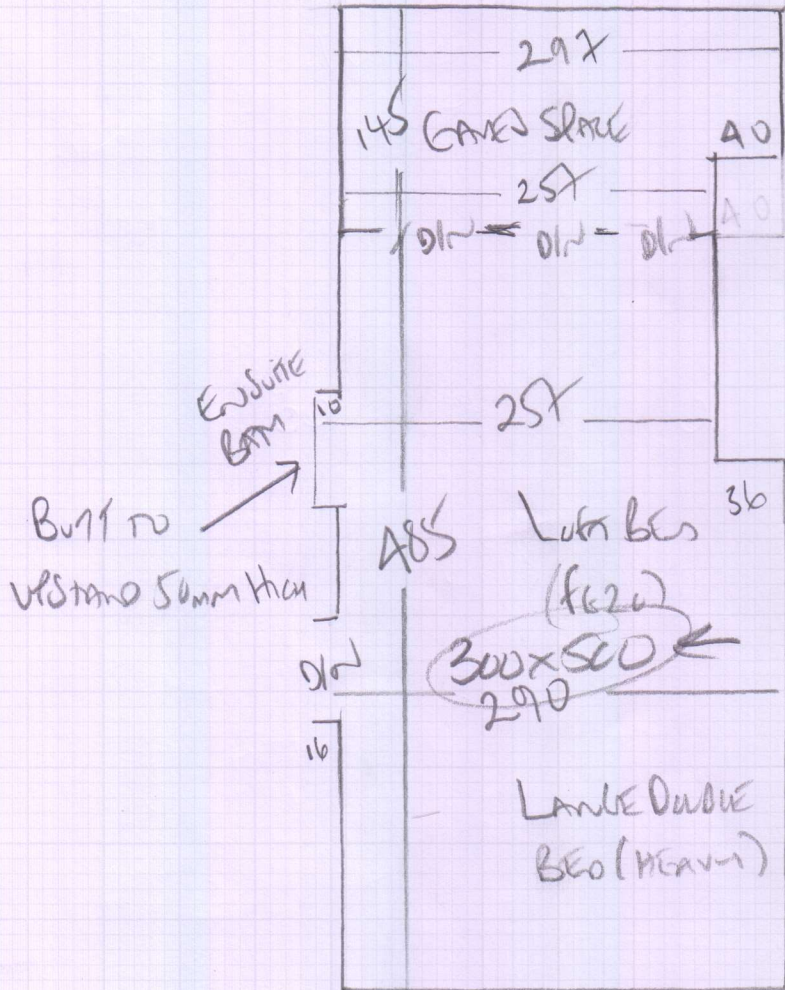 297
145
EAVES SPACE
40
257
40
D/W D/W D/W
ENSUITE
BATH
10
257
BUTT TO
UPSTAND 50MM HIGH
36
485
LOFT BED
300x500
D/W
290
16
LARGE DOUBLE
BED (HEAVY)